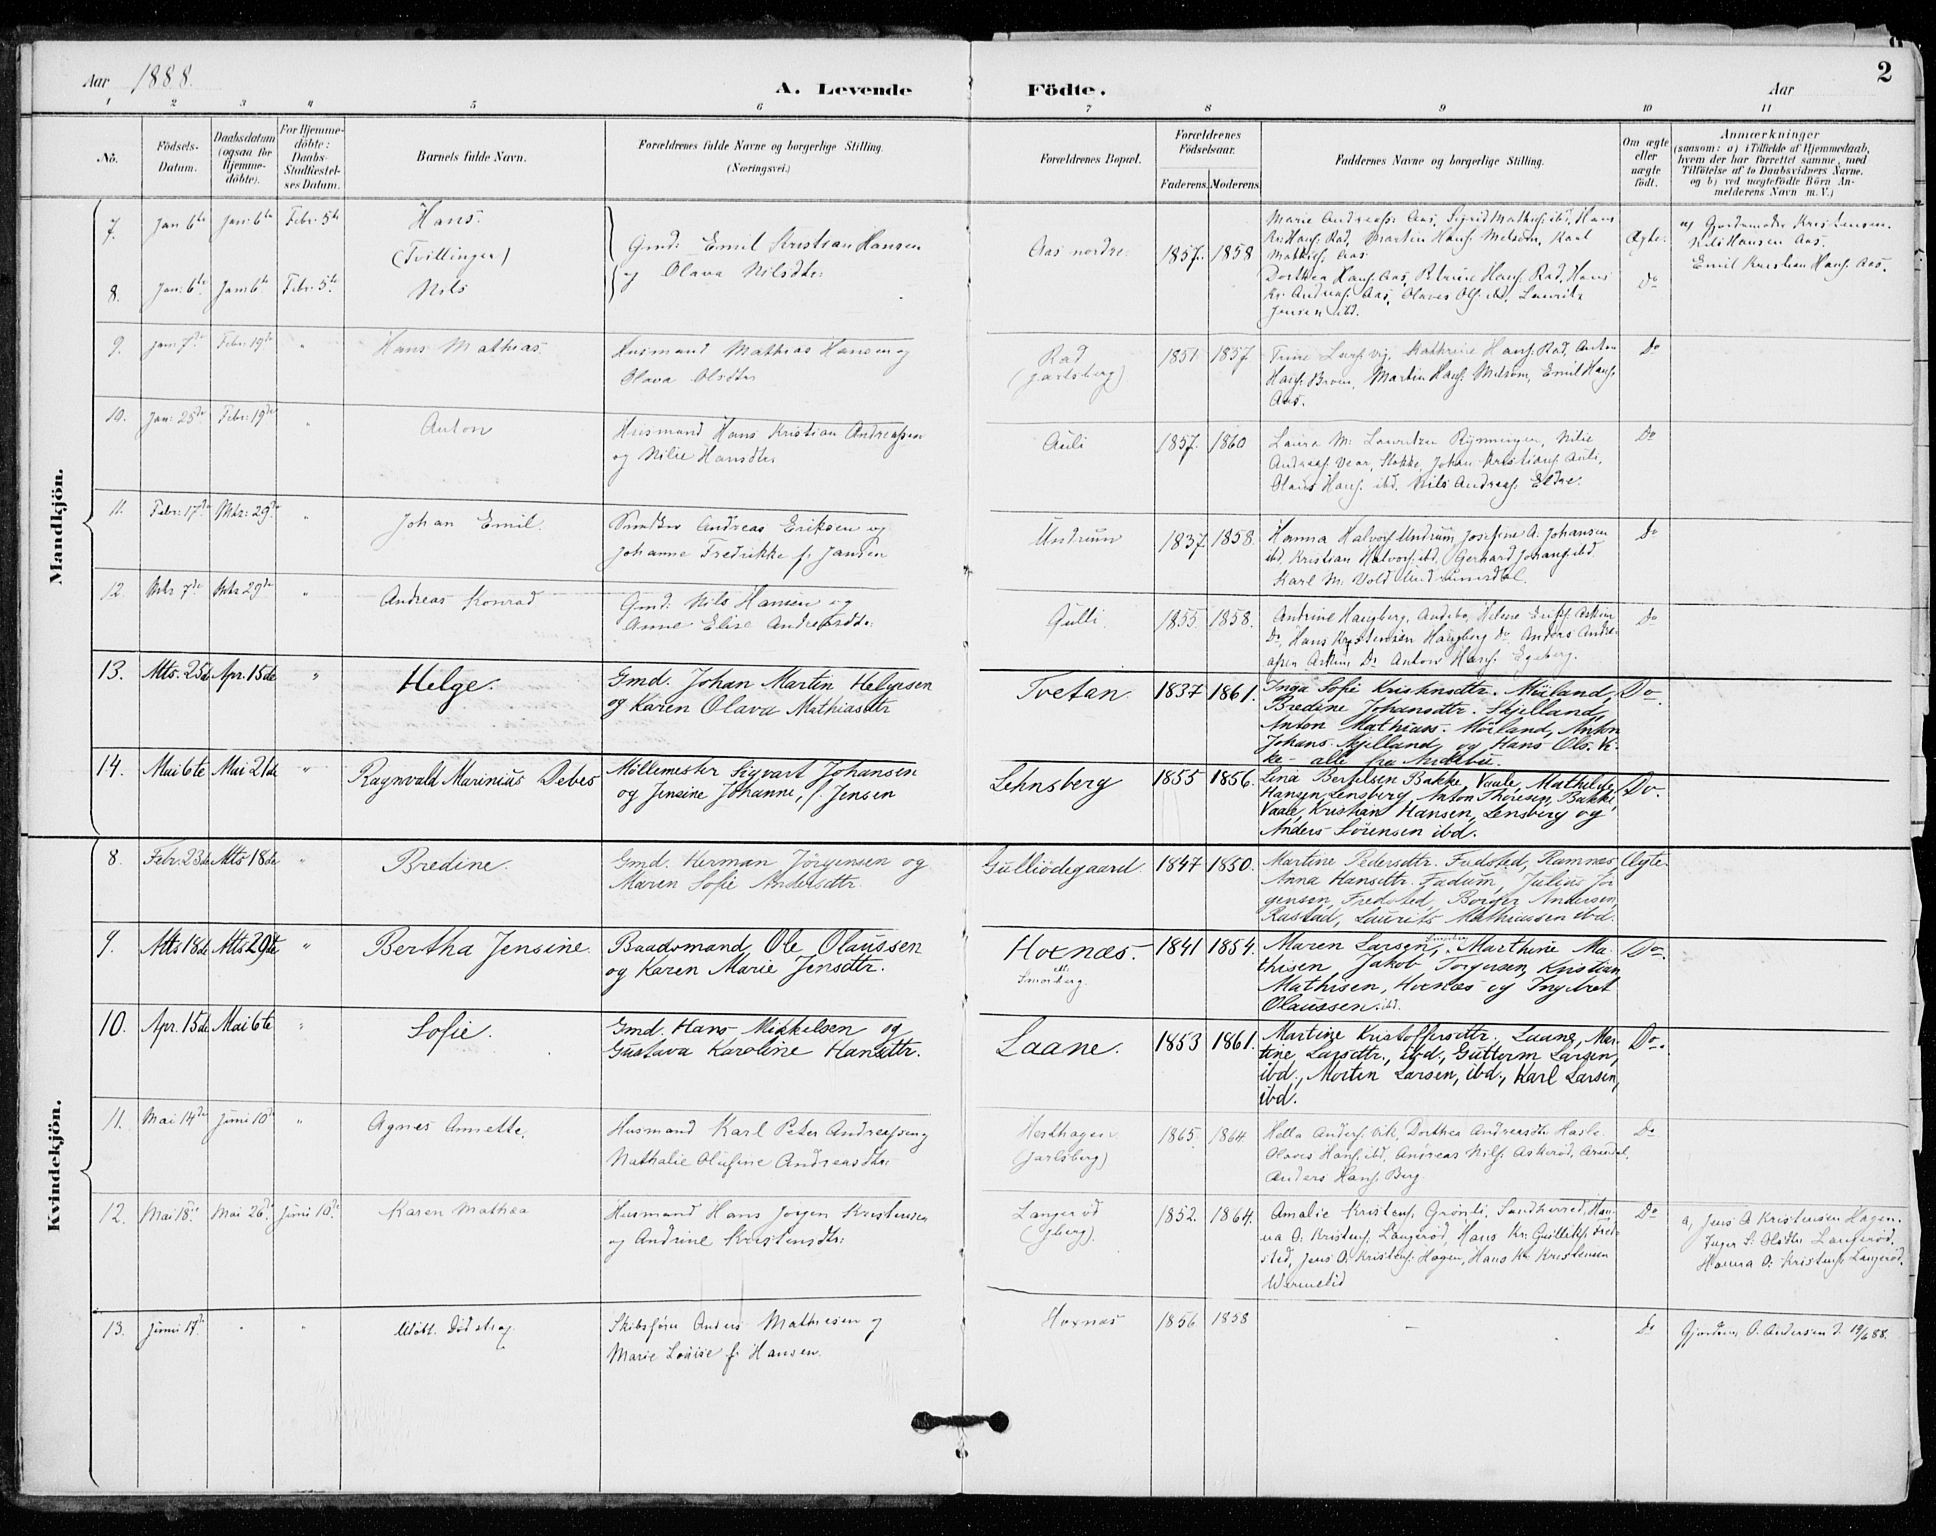 Aar 1888.
A. Levende Födte.
Aar
2
1 2 3 4 5 6 7 8 9 10 11
No.
Födsels-Datum.
Daabsdatum (ogsaa for Hjemme-döbte).
For Hjemme-döbte: Daabs-Stadfæstel-ses Datum.
Barnets fulde Navn.
Forældrenes fulde Navne og borgerlige Stilling.
(Næringsvei.)
Forældrenes Bopæl.
Forældrenes Födselsaar.
Faderens. Moderens.
Faddernes Navne og borgerlige Stilling.
Om ægte eller uægte födt.
Anmærkninger
(saasom: a) i Tilfælde af Hjemmedaab, hvem der har forrettet samme, med Tilföielse af to Daabsvidners Navne, og b) ved uægtefödte Börn An-melderens Navn m. V.)
Mandkjön.
7. Jan 6te Jan: 6te Febr: 5te Hans. (Tvillinger)
Gmd: Emil Kristian Hansen
og Olava Nilsdtr:
Aas nordre. 1857. 1858
Marie Andreass: Aas, Sigrid Mathis: ibd, Hans
Kr: Hans: Rad, Martin Hans: Melsom, Karl
Mathis: Aas
Ægte.
a, Gjordemoder Kristensen.
Nils Hansen Aas.
Emil Kristian Hans: Aas.
8. Jan: 6te Jan 6te Febr: 5te Nils
Dorthea Hans: Aas, Petrine Hans: Rad, Hans
Kr: Andreas: Aas, Olaves Ols: ibd, Laurits
Jensen ibd.
Do
9. Jan: 7de Febr: 19de " Hans Mathias.
Husmand Mathias Hansen og
Olava Olsdtr
Rad
(Jarlsberg)
1851 1857
Trine Lars: vig, Kathrine Hans: Rad, Anton
Hans: Broen, Martin Hans: Melsom, Emil Hans:
Aas.
Do
10. Jan: 25de Febr: 19de " Anton
Husmand Hans Kristian Andreassen
og Nilie Hansdtr
Auli 1857. 1860
Laura M. Lauritzen Rynningen, Nilie
Andreas: Vear, Stokke, Johan Kristians: Auli,
Olaus Hans: ibd. Nils Andreas: Eldre.
Do
11. Febr: 17de Mts: 29de " Johan Emil.
Andreas Eriksen og
Johanne Fredrikke f. Jansen
Undrum 1837. 1858.
Hanna Halvors: Undrum, Josefine A. Johansen
ibd, Kristian Halvors: ibd, Gerhard Johans: ibd.
Karl M. Vold
Do
12. Mts 7de Mts 29de " Andreas Konrad
Gmd: Nils Hansen og
Anne Elise Andreasdtr:
Gulli. 1855. 1858.
Andrine Haugberg, Andebu, Helene Askim
Do, Hans Kristensen Haugberg Do, Anders Andre-
assen Askim Do Anton Hans: Egeberg.
Do
13. Mts. 25de Apr. 15de " Helge.
Gmd. Johan Martin Helgesen
og Karen Olava Mathiasdtr
Tvetan. 1837 1861.
Inga Sofie Kristinsdtr. Möiland,
Bredine Johansdtr. Skjelland,
Anton Mathiass. Möiland, Anton
Johans. Skjelland, og Hans Ols. Vi-
ke - alle fra Andebu.
Do.
14. Mai 6te Mai 21de " Ragnvald Marinius Debes
Möllemester Sigvart Johansen
og Jensine Johanne, f. Jensen
Lehnsberg 1855 1856.
Lina Bertelsen Bakke, Vaale, Mathilde
Hansen Lensberg, Anton Thoresen, Bakke,
Vaale, Kristian Hansen, Lensberg og
Anders Sörensen ibd.
Do.
Kvindekjön.
8. Febr. 23de Mts 18de " Bredine.
Gmd. Herman Jörgensen og
Maren Sofie Andersdtr.
Gulliödegaard 1847 1850.
Martine Pedersdtr. Fredsted, Ramnes,
Anna Hansdtr. Fadum, Julius Jör-
gensen, Fredsted, Borger Andersen,
Rastad, Laurits Mathiassen ibd.
Ægte.
9. Mts. 18de Mts. 29de " Bertha Jensine.
Baadsmand, Ole Olaussen
og Karen Marie Jensdtr.
Hoxnæs.
Smörberg.
1841 1854.
Maren Larsen, Smörberg, Marthine Ma-
thisen, Jakob Torgersen, Kristian
Mathisen, Hoxnæs og Ingebret
Olaussen. ibd.
Do.
10. Apr. 15de Mai 6te " Sofie.
Gmd. Hans Mikkelsen og
Gustava Karoline Hansdtr.
Laane. 1853 1861.
Martine Kristoffersdtr. Laane, Mar-
tine Larsdtr., ibd., Guttorm Larsen,
ibd., Morten Larsen, ibd., Karl Larsen,
ibd.
Do.
11. Mai 14de Juni 10de " Agnes Annette.
Husmand Karl Peter Andreassen og
Nathalie Olufine Andreasdtr:
Hesthagen
(Jarlsberg)
1865. 1864.
Hella Anders: Vik, Dorthea Andreasdtr Hasle.
Olaves Hans: ibd, Andreas Nils: Askerød, Arendal,
Anders Hans: Berg
Do
12. Mai 18de Mai 26de Juni 10de Karen Mathea
Husmand Hans Jørgen Kristensen
og Andrine Kristensdtr:
Langerød
(Egberg).
1852. 1864.
Amalie Kristens: Grönli, Sandherred, Han-
na O. Kristens: Langerød, Hans Kr: Gulliks: Fred-
sted, Jens O. Kristens: Hagen, Hans Kr Kristensen
Wermelid
Do
a, Jens O Kristensen Hagen.
Inger S: Olsdtr Langerød.
Hanna O. Kristens: Langerød.
13. Juni 17de " " Udöbt.
Skibsfører Anders Mathisen og
Marie Louise f. Hansen.
Hoxnæs 1856 1858
-
Do
Gjordem O. Andersen d. 19/6 88.